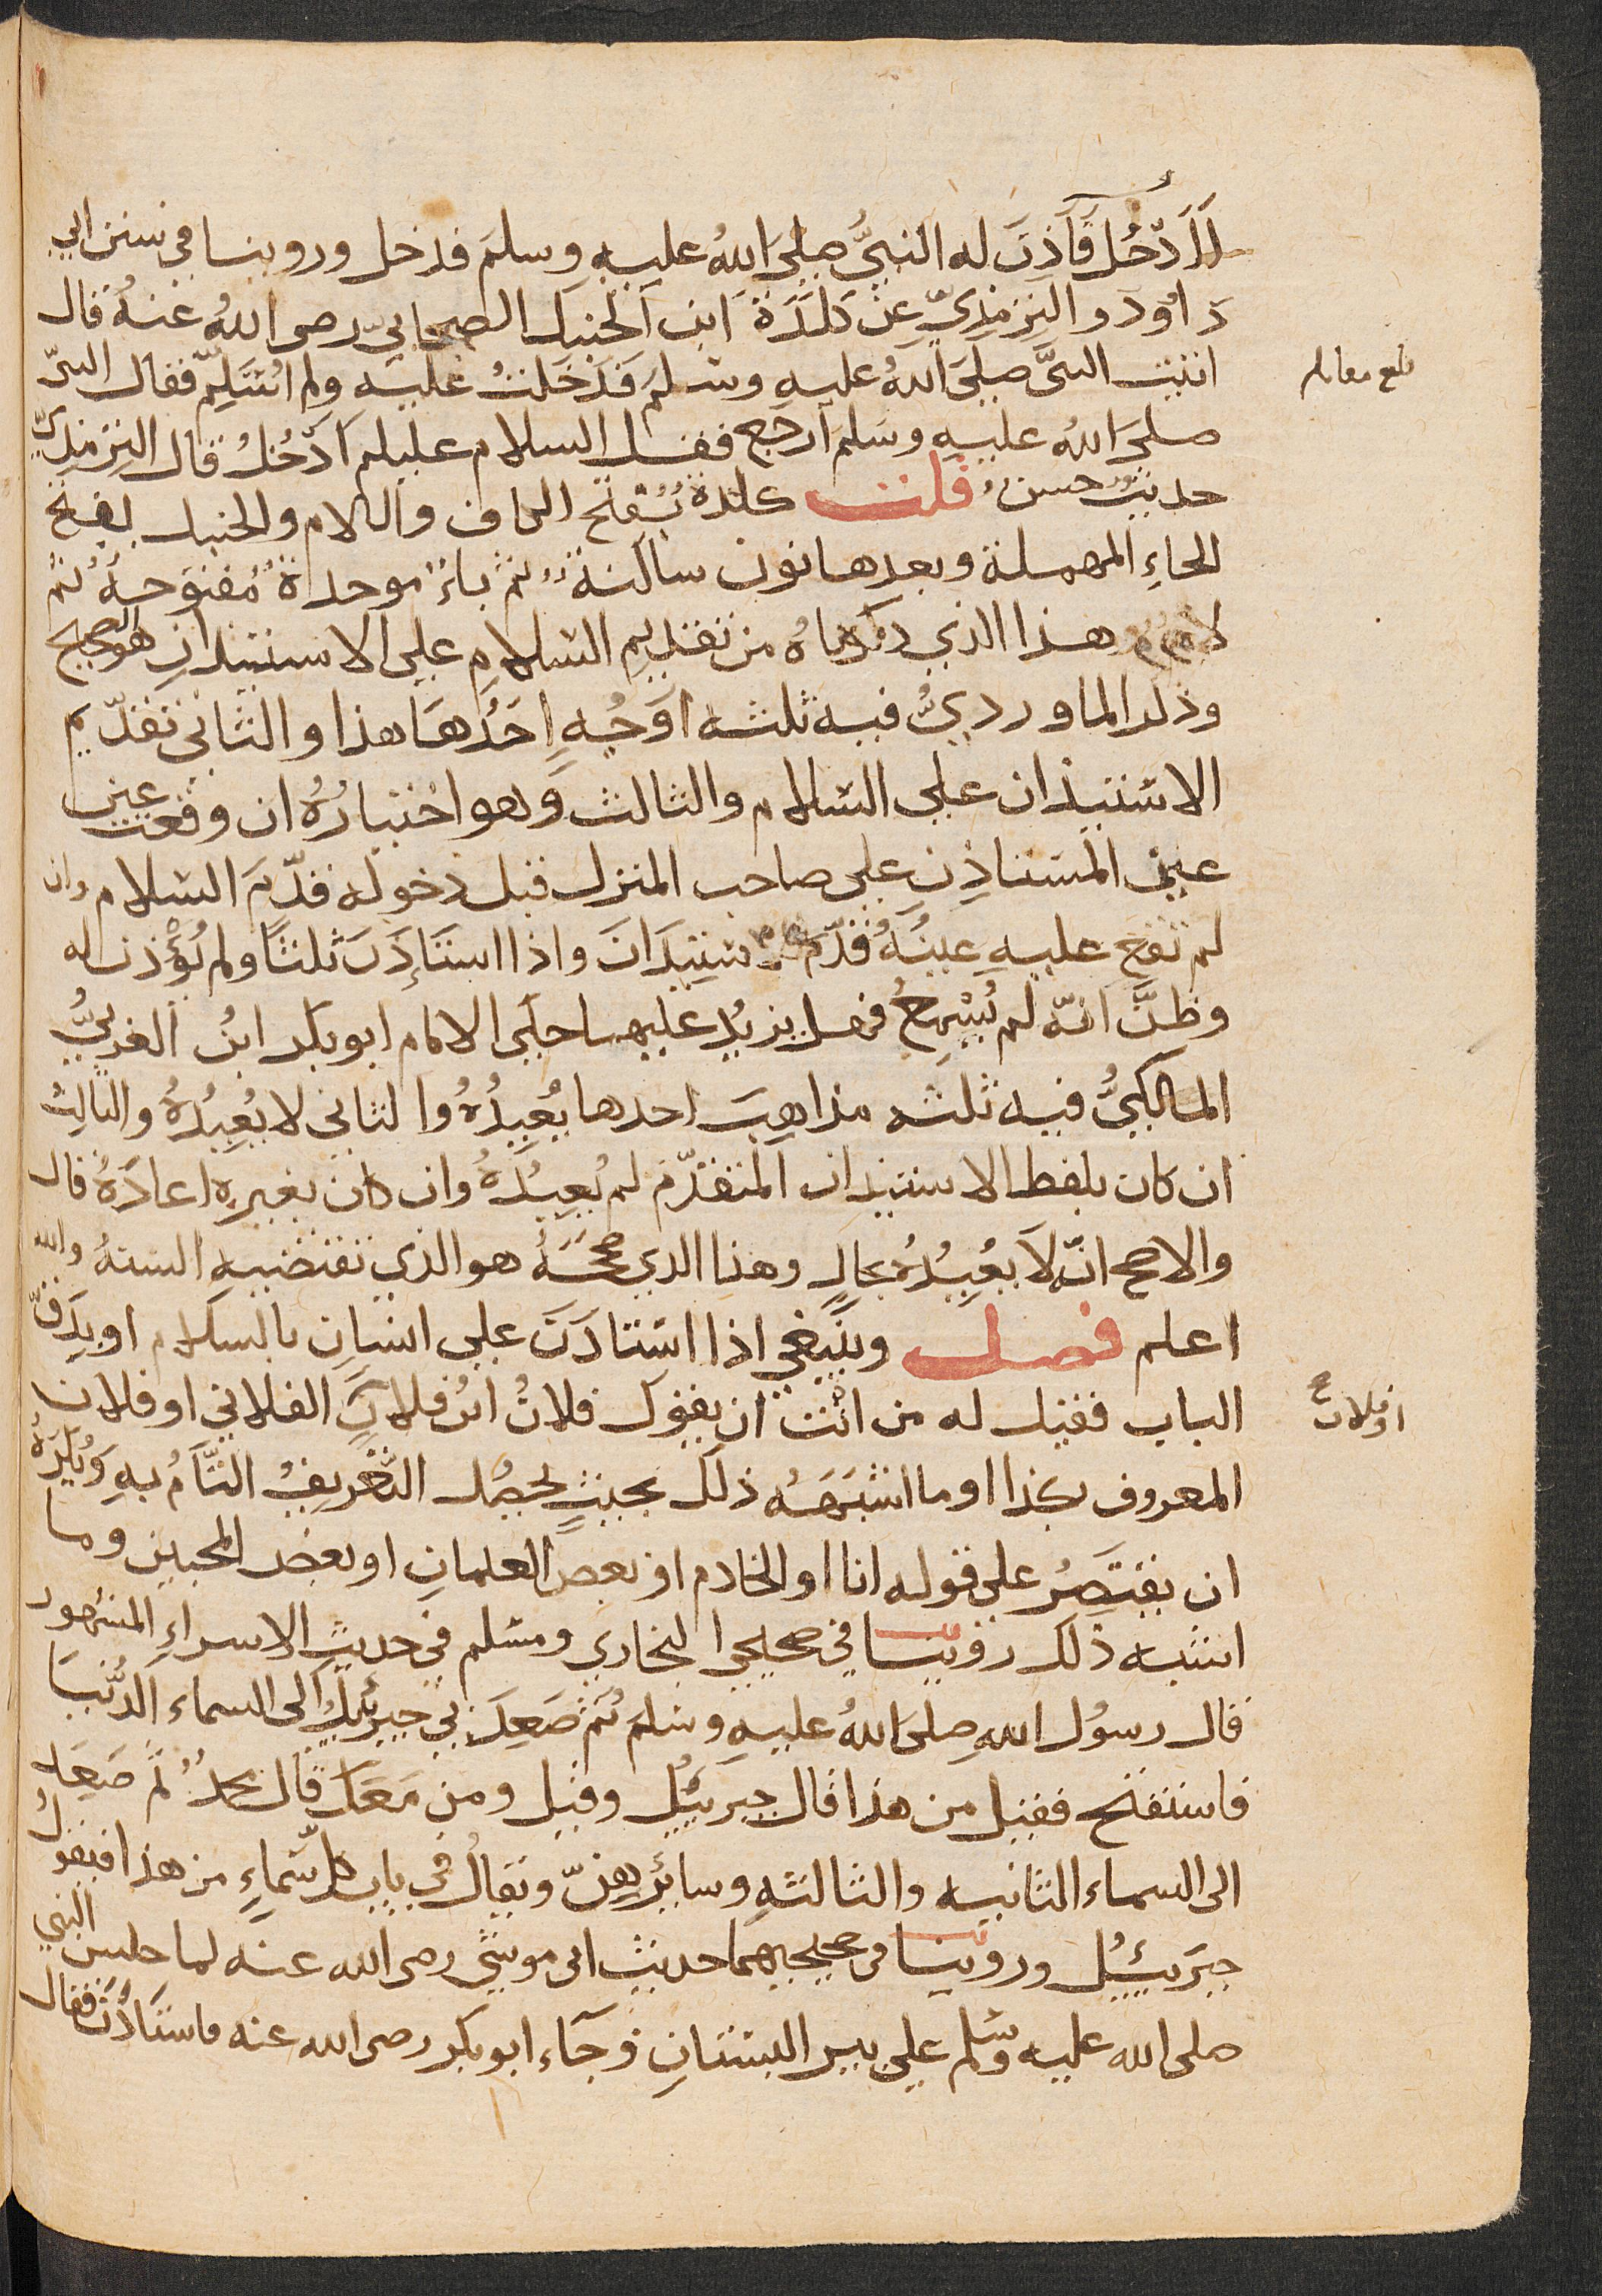 أَأَدْخُلُ فَأَذِنَ له النبيُّ صلى اللهُ عليهِ وسلمَ فدخل وروينا في سنن ابي
دَاوُدَ والتِرمِذيّ عن كَلَدَةَ ابن الحنبل الصحابيّ رضي اللهُ عنهُ قال
اتيت النبيَّ صلى اللهُ عليهِ وسلمَ فَدَخَلتُ عليه ولم اُسَلِّم فقال النبيّ
صلى اللهُ عليهِ وسَلمَ ارجع فقل السلام عليكم اَدْخُلُ قال الترمذيّ
حديثٌ حسنٌ قلت كلدة بُفتح الكاف واللام والحنبل بفتح
الحاءِ المهملة وبعدها نون ساكنة ثم باءٌ موحدةٌ مُفتوحةٌ ثم
لامٌ هذا الذي ذكرناهُ من تقديمِ السلامِ على الاستيذانِ هو الصحيح
وذكر الماورديُّ فيه ثلثه اوجُهٍ اَحَدُهَا هذا والثاني تقدّيم
الاستيذان على السلام والثالث وهو اختيارُهُ ان وقعت عين
عين المستاذِنِ على صاحب المنزل قبل دخوله قدّمَ السلام وان
لم تقع عليهِ عينُهُ قدّم الاستيذَانَ واذا استَأذَنَ ثلثًا ولم يُؤذن له
وظَنَّ انّه لم يُسْمِعُ فهل يزيدُ عليها حكى الامام ابو بكر ابنُ العربيُّ
المالكيُّ فيه ثلثه مذاهِبَ احدها يُعِيدُهُ والثاني لا يُعِيدُهُ والثالثُ
ان كان بلفظ الاستيذان المتقدّم لم يُعِيدُهُ وان كان بغيرِهِ اعادَهُ قال
والاصح انّه لا يُعِيدُهُ بحالٍ وهذا الذي صححَهُ هو الذي تقتضيهِ السنهُ والله
اعلم فصل وينبغي اذا استاذَنَ على انسانٍ بالسلام او بدَقّ
الباب فقيل له من انت ان يقول فلانُ ابنُ فلانٍ الفلاني او فلان
المعروف بكذا او ما اشبَهَه ذلك بحيث يحصُل التعريفُ التَّامُ بهِ وَيُكرَهُ
ان يقتَصِرُ على قوله انا او الخادم او بعض الغلمانِ او بعض المحبين وما
اشبه ذلك روينا في صحيحي البخاري ومسلم في حديث الاسراءِ المشهور
قال رسوُل اللهِ صلى اللهُ عليهِ وسلم ثم صَعِدَ بي جبرئيلُ الى السماء الدُنيَا
فاستفتح فقيل من هذا قال جبرئيُل وقيل ومن مَعَكَ قال محمدٌ ثم صَعِدَ
الى السماء الثانيه والثالثهِ وسائرِهِنّ ويُقالُ في باب كلّ سَماءٍ من هذا فيقولُ
جبَرئيُل وروينا في صحيحيهما حديث ابي موسى رضي الله عنه لما جلس النبي
صلى الله عليه وسلم على بير البستانِ وَجَاء ابو بكر رضي الله عنه فاستَاذَنَ فقال
بلغ مقابله
او فلان صح